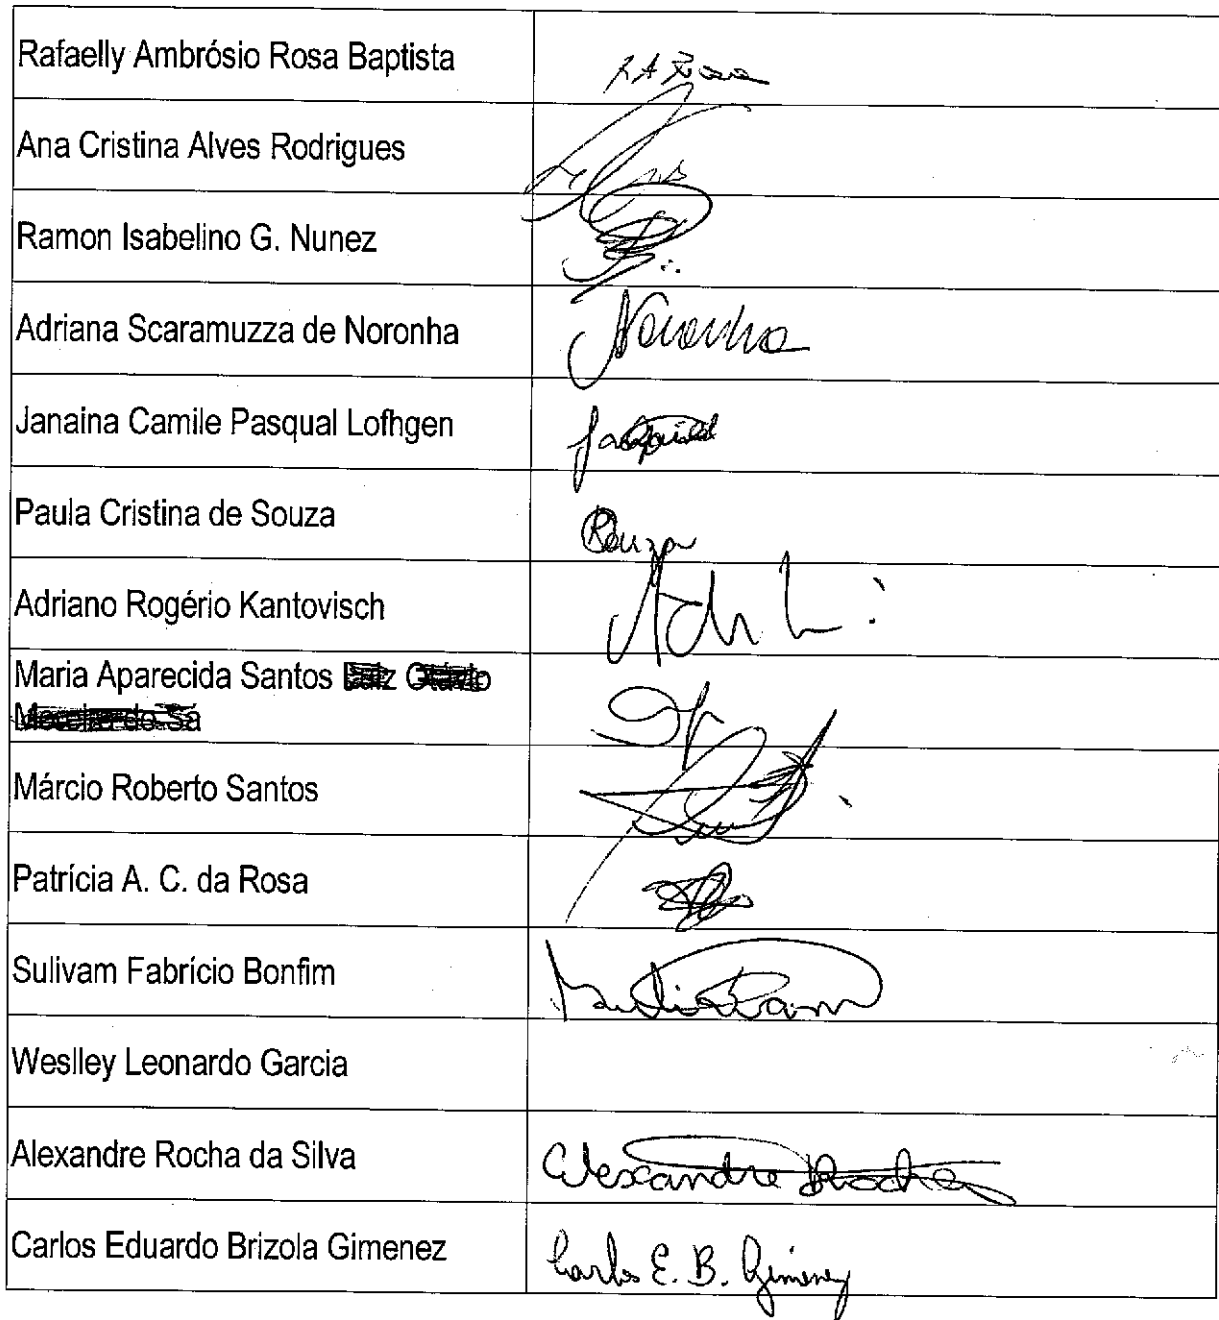 Rafaelly Ambrósio Rosa Baptista
R A Rosa
Ana Cristina Alves Rodrigues
Ramon Isabelino G. Nunez
Adriana Scaramuzza de Noronha
Noronha
Janaina Camile Pasqual Lofhgen
Paula Cristina de Souza
Souza
Adriano Rogério Kantovisch
Maria Aparecida Santos
Márcio Roberto Santos
Patrícia A. C. da Rosa
Sulivam Fabrício Bonfim
Weslley Leonardo Garcia
Alexandre Rocha da Silva
Alexandre Rocha
Carlos Eduardo Brizola Gimenez
Carlos E. B. Gimenez